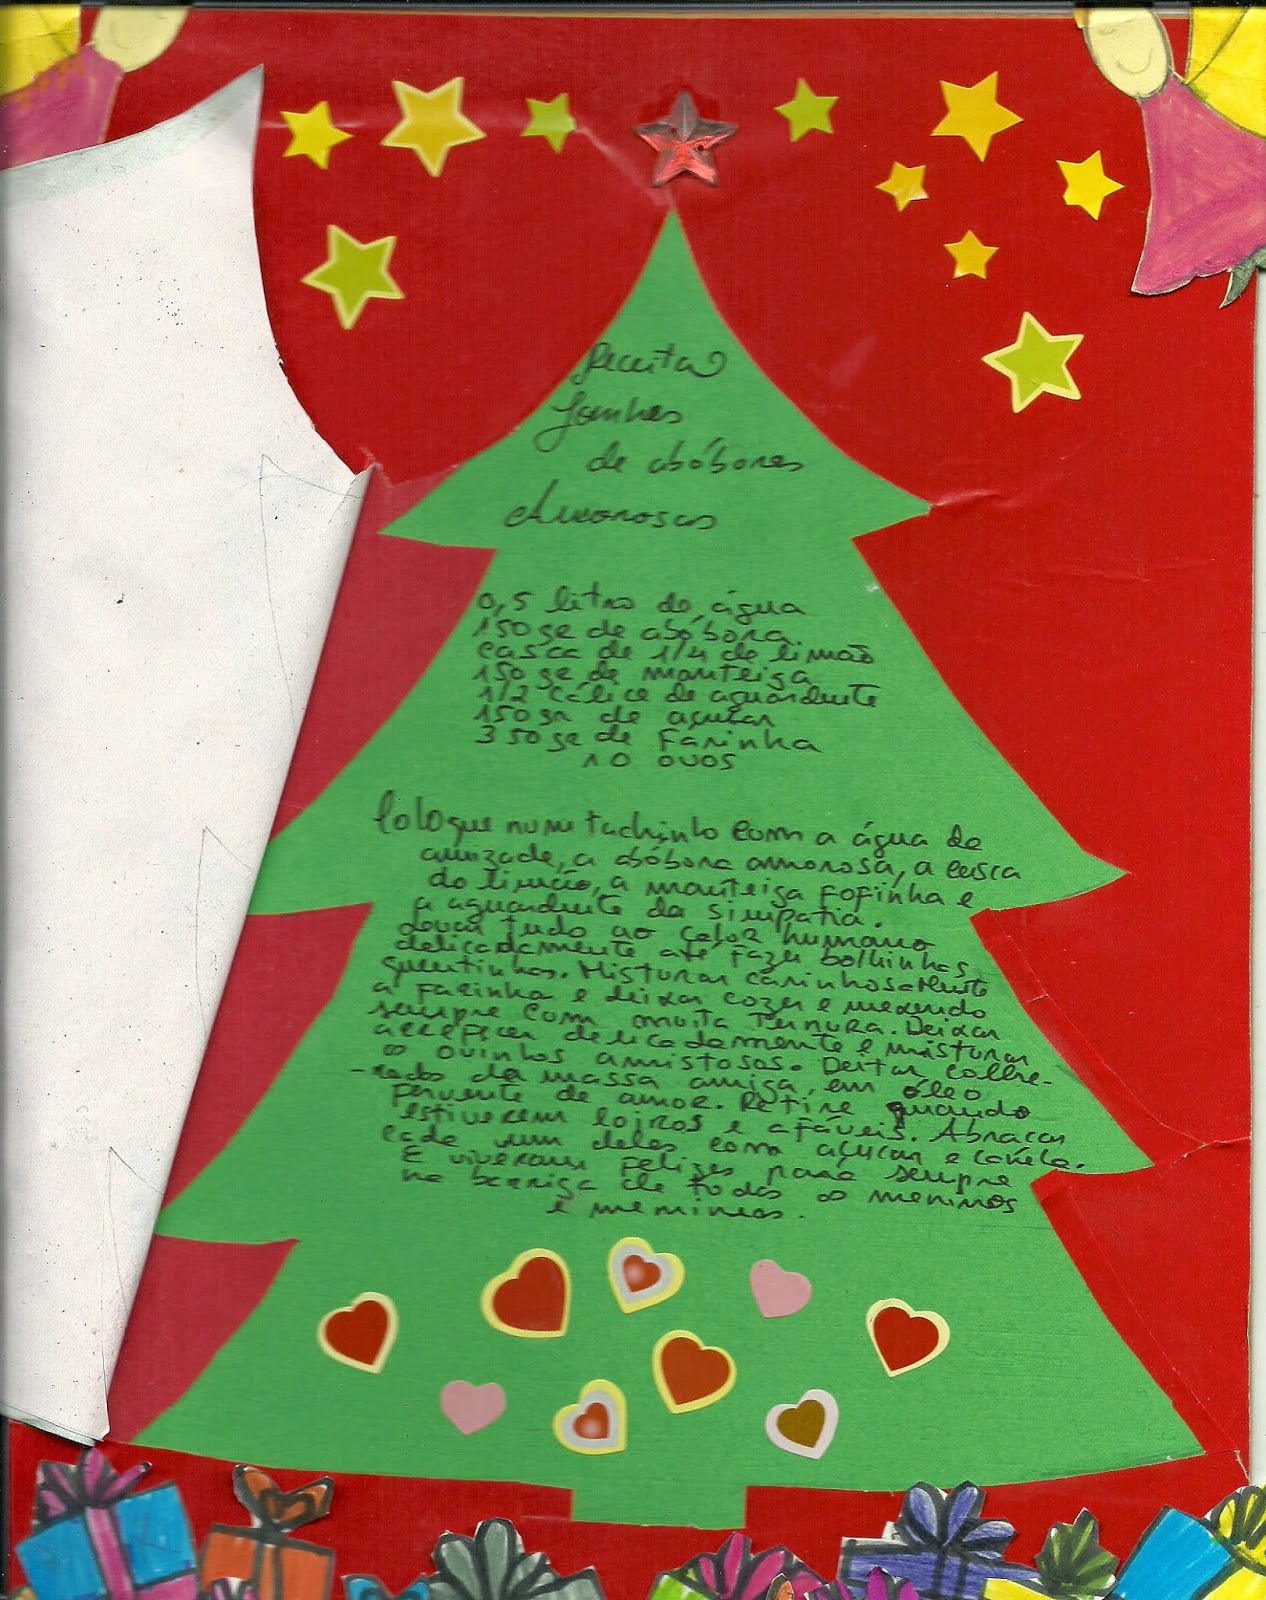 Receita
Sonhos
de abóboras
Amorosas
0,5 litro de água
150 gr de abóbora
casca de 1/4 de limão
150 gr de manteiga
1/2 cálice de aguardente
150 gr de açucar
350 gr de Farinha
10 ovos
Coloque num tachinho com a água de
amizade, a abóbora amorosa, a casca
do limão, a manteiga fofinha e
a aguardente da simpatia.
Levar tudo ao calor humano
delicadamente até fazer bolhinhas
quentinhas. Misturar carinhosamente
a farinha e deixar cozer e mexendo
sempre com muita ternura. Deixar
arrefecer delicadamente e misturar
os ovinhos amistosos. Deitar colhe-
-radas da massa amiga, em óleo
fervente de amor. Retire quando
estiverem loiros e afáveis. Abraçar
cada um deles com açucar e canela.
E viveram felizes para sempre
na barriga de todos os meninos
e meninas.